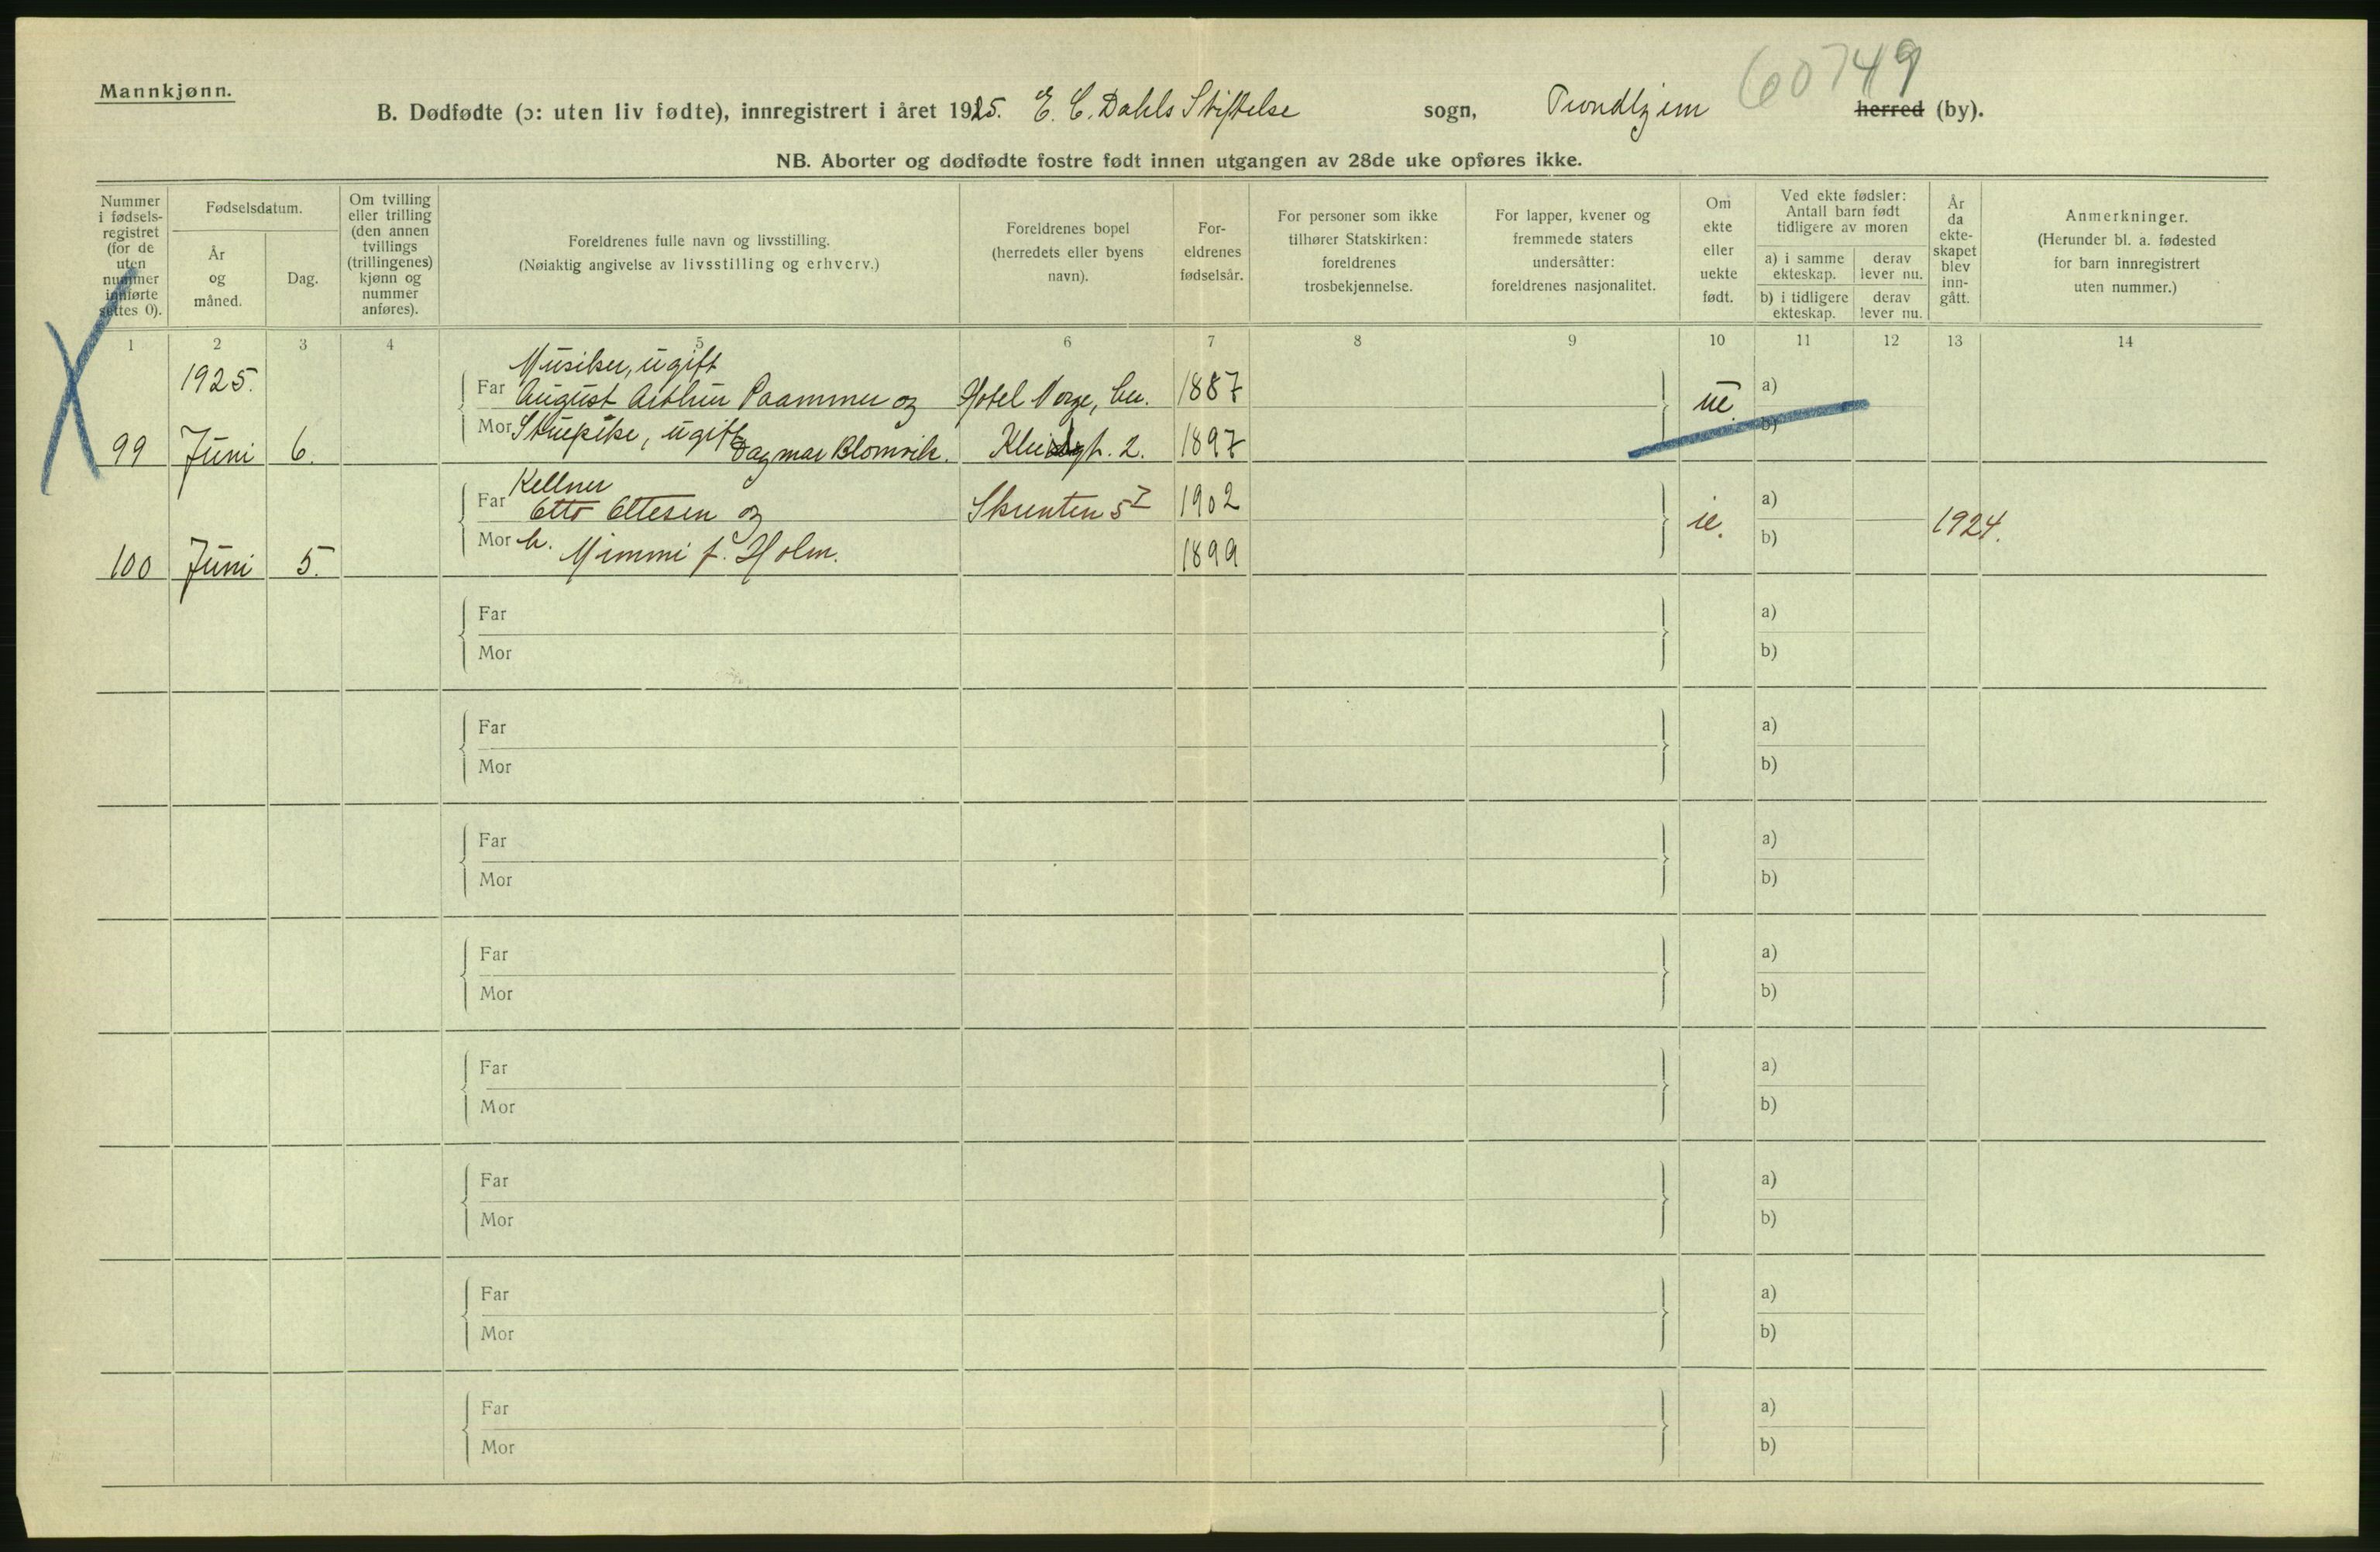 60749
Mannkjønn.
B. Dødfødte (ɔ: uten liv fødte), innregistrert i året 1925. E. C. Dahls Stiftelse sogn, Trondhjem herred (by).
NB. Aborter og dødfødte fostre født innen utgangen av 28de uke opføres ikke.
Nummer i fødsels-registret (for de uten nummer innførte settes 0).
Fødselsdatum.
År og måned.
Dag.
Om tvilling eller trilling (den annen tvillings (trillingenes) kjønn og nummer anføres).
Foreldrenes fulle navn og livsstilling.
(Nøiaktig angivelse av livsstilling og erhverv.)
Foreldrenes bopel (herredets eller byens navn).
For-eldrenes fødselsår.
For personer som ikke tilhører Statskirken: foreldrenes trosbekjennelse.
For lapper, kvener og fremmede staters undersåtter: foreldrenes nasjonalitet.
Om ekte eller uekte født.
Ved ekte fødsler: Antall barn født tidligere av moren
a) i samme ekteskap.
derav lever nu.
b) i tidligere ekteskap.
derav lever nu.
År da ekte-skapet blev inn-gått.
Anmerkninger.
(Herunder bl. a. fødested for barn innregistrert uten nummer.)
1 2 3 4 5 6 7 8 9 10 11 12 13 14
1925.
Musiker, ugift
Far August Arthur Paammer og Hotel Norge, 1887 ue. a)
99 Juni 6. Mor Stuepike, ugift Dagmar Blomvik. 2. 1897 b)
Kellner
Far Otto Ottesen og Skrenten 5 I 1902 ie. a) 1924.
100 Juni 5. Mor h. Mimmi f. Holm. 1899 b)
Far a)
Mor b)
Far a)
Mor b)
Far a)
Mor b)
Far a)
Mor b)
Far a)
Mor b)
Far a)
Mor b)
Far a)
Mor b)
Far a)
Mor b)